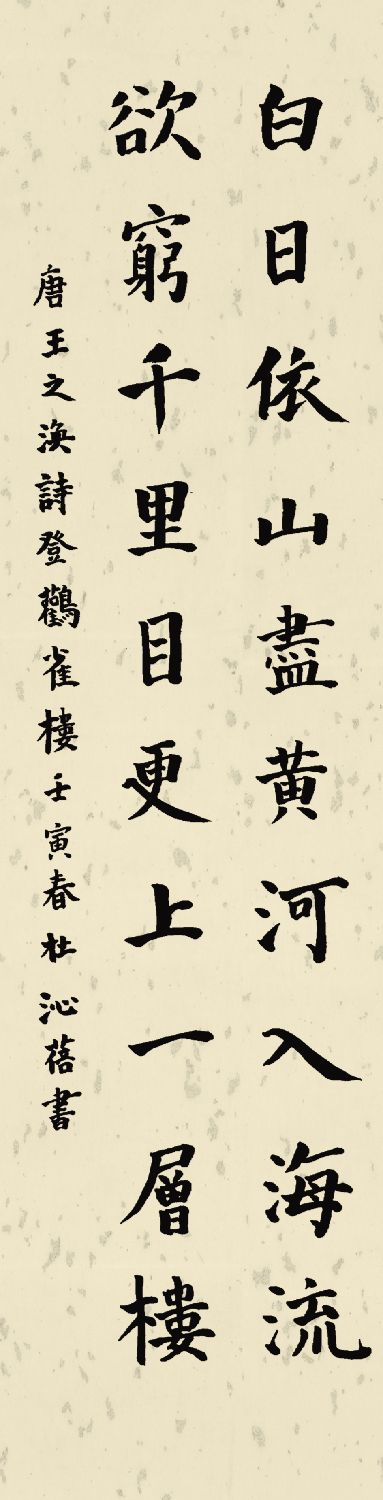 白日依山盡黃河入海流
欲窮千里目更上一層樓
唐王之渙詩登鸛雀樓壬寅春杜沁蓓書